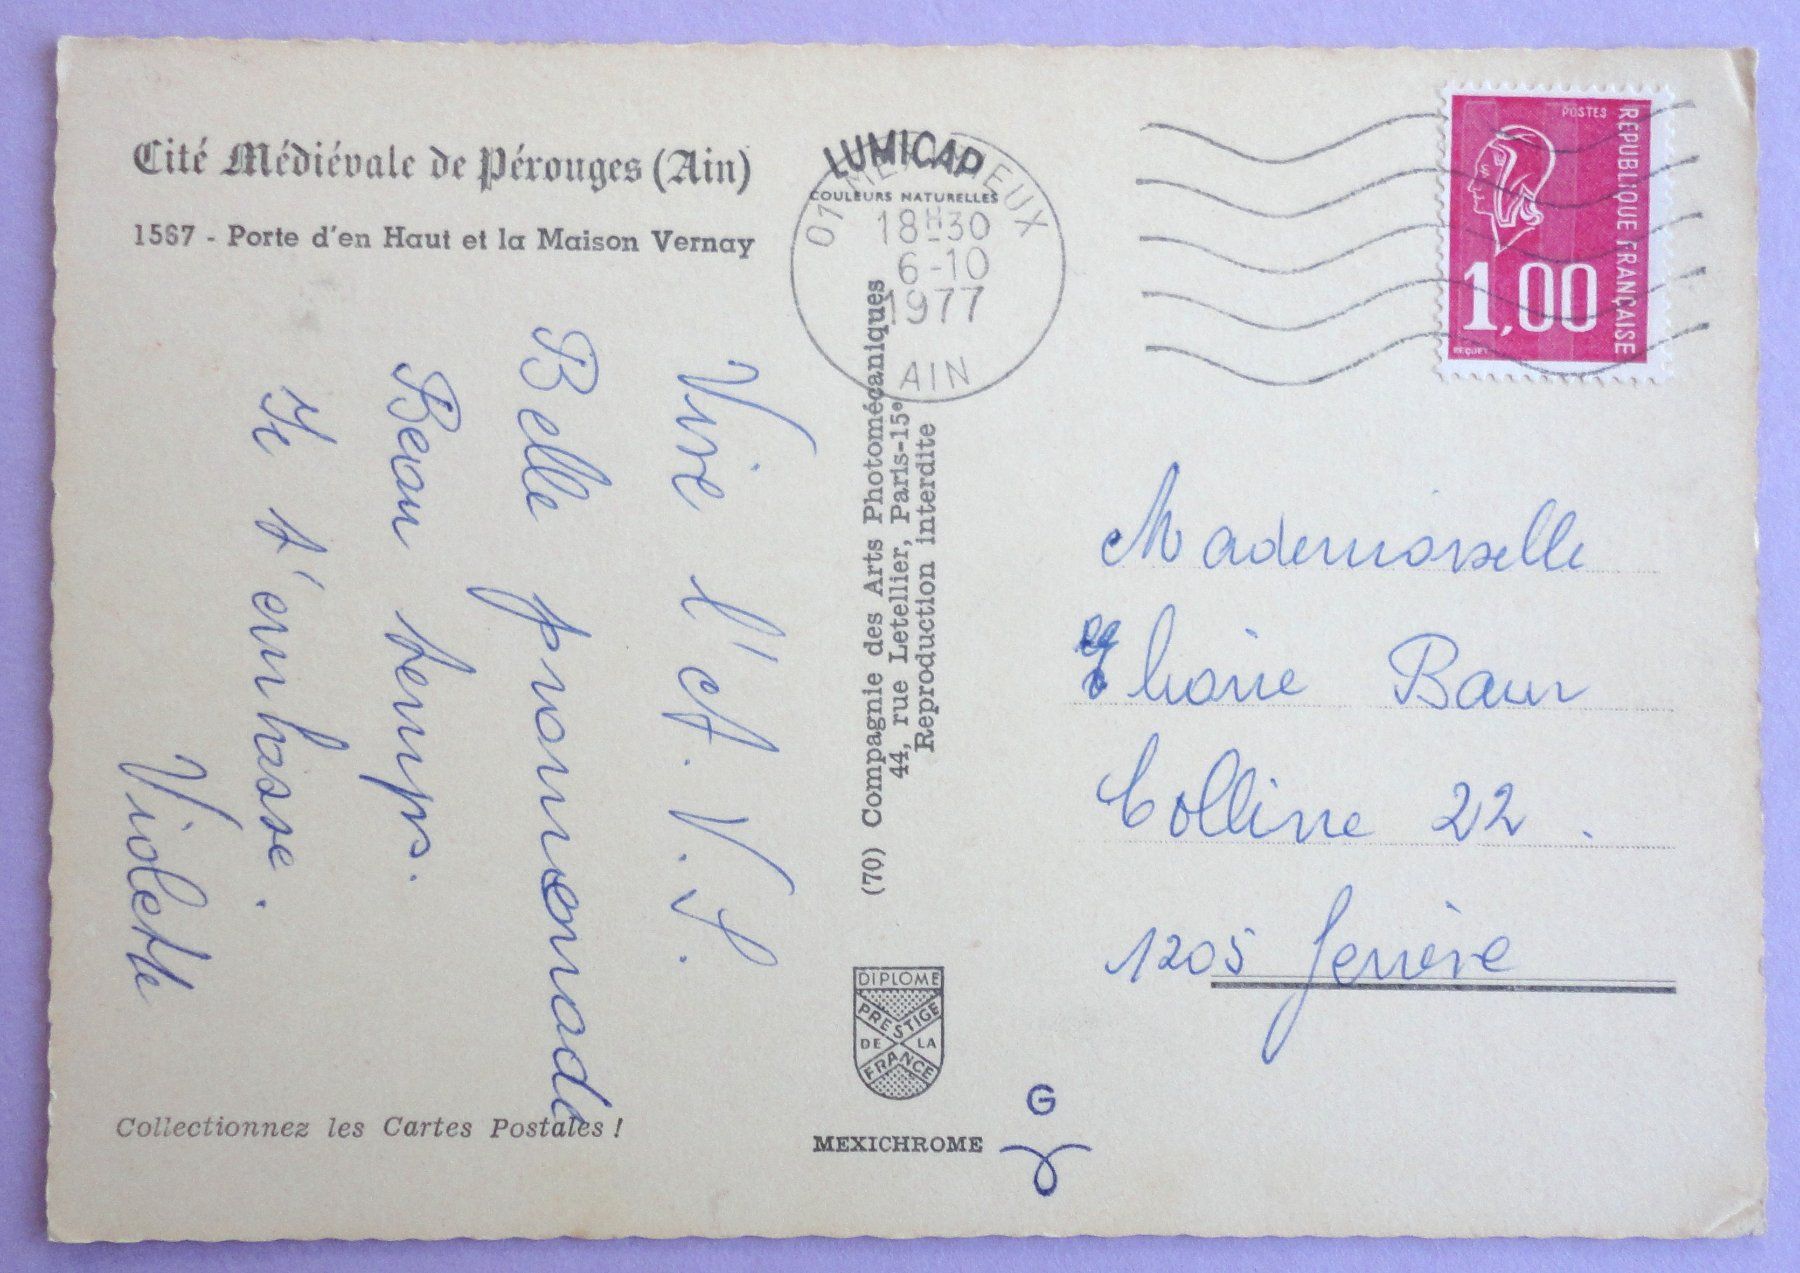 Cité Médiévale de Pérouges (Ain)
1567 - Porte d'en Haut et la Maison Vernay
Vive l'A.V.S.
Belle promenade
Beau temps.
Je t'embrasse.
Violette
Collectionnez les Cartes Postales !
LUMICAP
COULEURS NATURELLES
01 MEXIMIEUX
18H30
6-10
1977
AIN
(70) Compagnie des Arts Photomécaniques
44, rue Letellier, Paris-15e
Reproduction interdite
DIPLOME
PRESTIGE
DE LA
FRANCE
MEXICHROME
G
POSTES
REPUBLIQUE FRANÇAISE
1,00
BEQUET
Mademoiselle
Eliane Baur
Colline 22.
1205 Genève